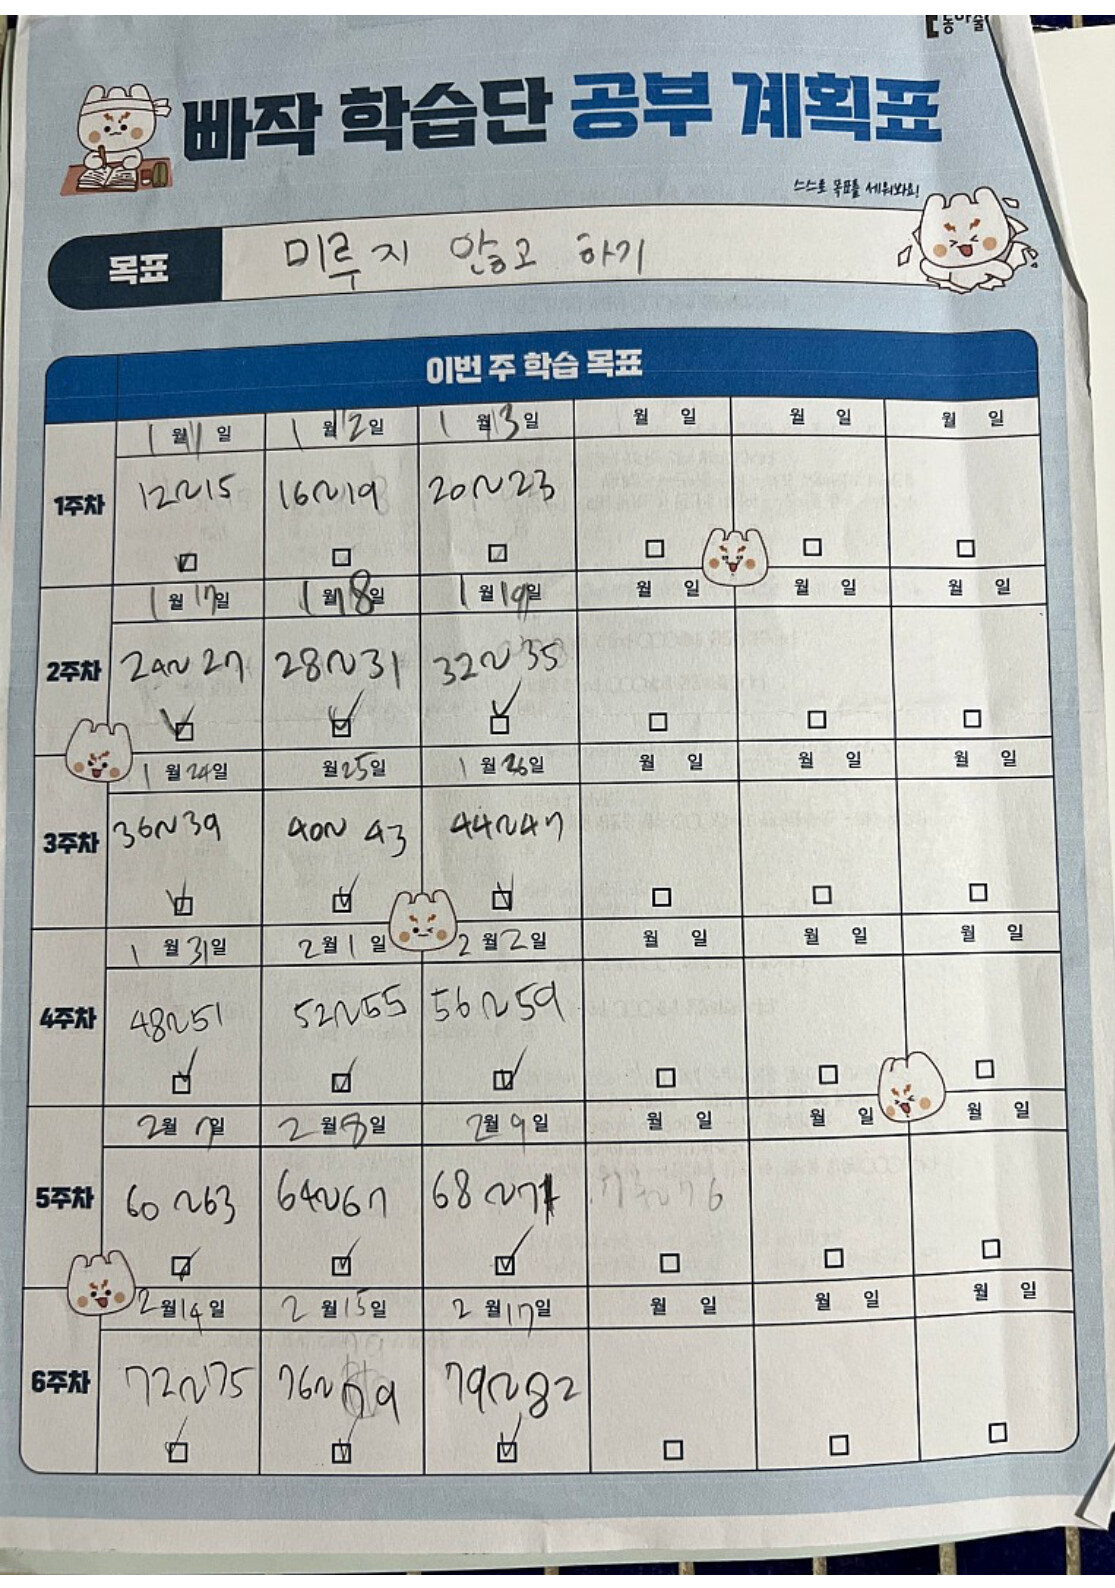 동아출
빠작 학습단 공부 계획표
스스로 목표를 세워봐요!
목표 미루지 않고 하기
이번 주 학습 목표
1월 11일 1월 12일 1월 13일 월 일 월 일 월 일
1주차 12~15 16~19 20~23
1월 17일 1월 18일 1월 19일 월 일 월 일 월 일
2주차 24~27 28~31 32~35
1월 24일 월 25일 1월 26일 월 일 월 일 월 일
3주차 36~39 40~43 44~47
1월 31일 2월 1일 2월 2일 월 일 월 일 월 일
4주차 48~51 52~55 56~59
2월 7일 2월 8일 2월 9일 월 일 월 일 월 일
5주차 60~63 64~67 68~71 73~76
2월 14일 2월 15일 2월 17일 월 일 월 일 월 일
6주차 72~75 76~79 79~82